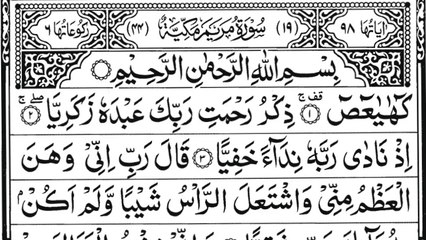 اٰیَاتُهَا ۹۸ (۱۹) سُوْرَةُ مَرْيَمَ مَكِّيَّةٌ (۴۴) رُكُوْعَاتُهَا ۶
بِسْمِ اللّٰهِ الرَّحْمٰنِ الرَّحِيْمِ
كٓهٰيٰعٓصٓ ۚ۱ ذِكْرُ رَحْمَتِ رَبِّكَ عَبْدَهٗ زَكَرِيَّا ۚ۲
اِذْ نَادٰى رَبَّهٗ نِدَآءً خَفِيًّا ۳ قَالَ رَبِّ اِنِّىْ وَهَنَ
الْعَظْمُ مِنِّىْ وَاشْتَعَلَ الرَّاْسُ شَيْبًا وَّلَمْ اَكُنْۢ